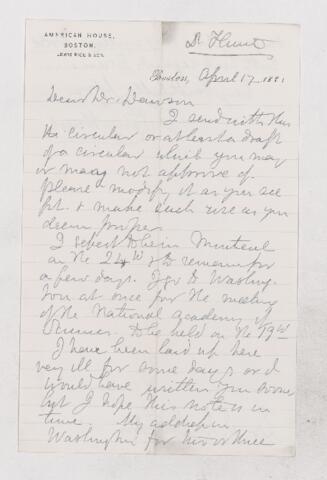 AMERICAN HOUSE,
BOSTON.
LEWIS RICE & SON.
Dr Hunt
Boston, April 17 1881
Dear Dr. Dawson
I send with this
the circular or at least a draft
of a circular which you may
or may not approve of.
please modify it as you see
fit & make such use as you
deem proper.
I expect to be in Montreal
on the 24th & to remain for
a few days. I go to Washing-
ton at once for the meeting
of the National Academy of
Sciences. To be held on the 19th
I have been laid up here
very ill for some days or I
would have written you sooner
but I hope this note is in
time. My address in
Washington for two or three